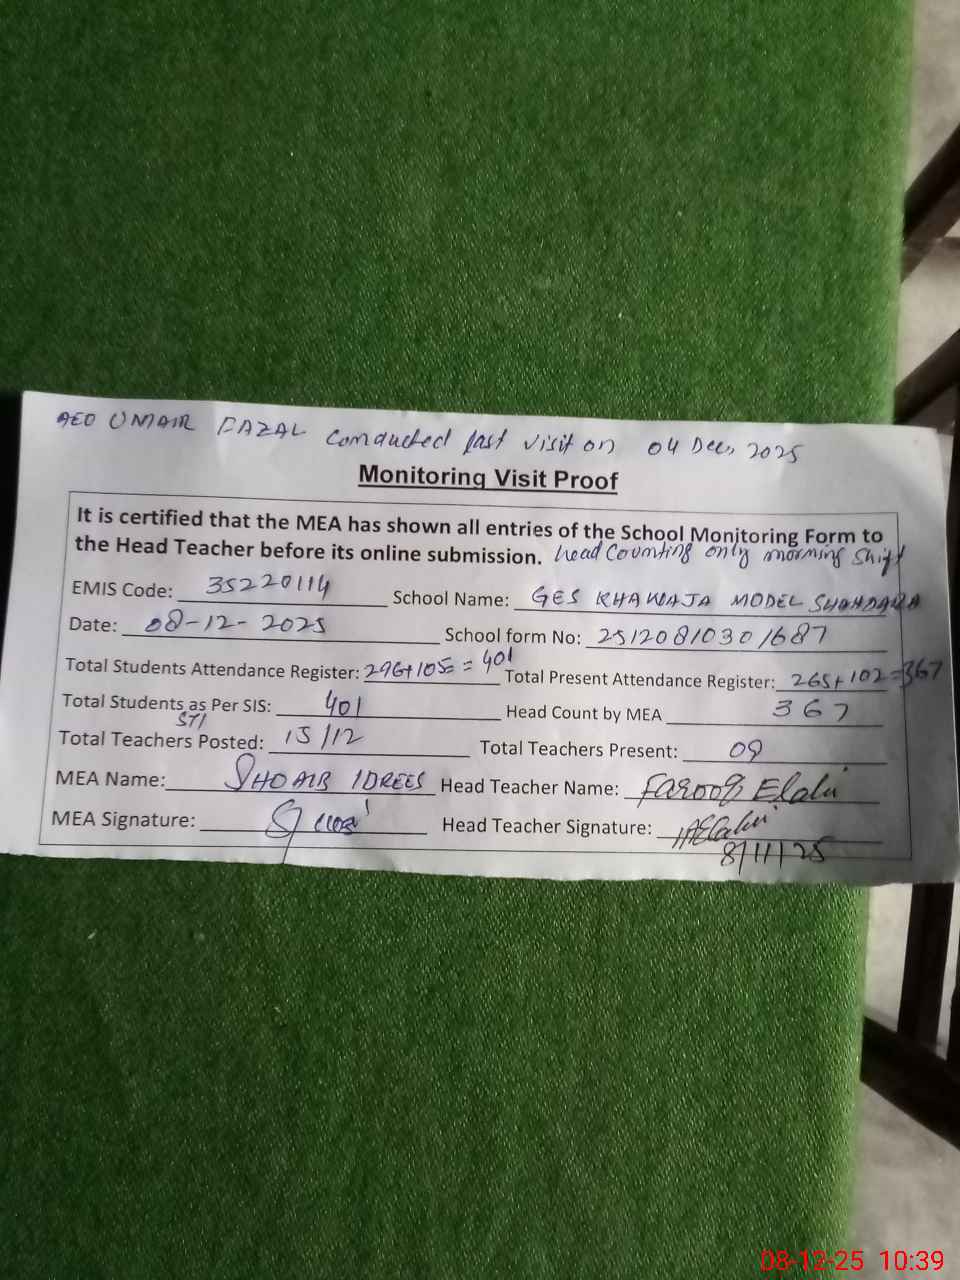 AEO UMAIR FAZAL Conducted last visit on 04 Dec, 2025
Monitoring Visit Proof
It is certified that the MEA has shown all entries of the School Monitoring Form to
the Head Teacher before its online submission. head Counting only morning shift
EMIS Code: 35220114 School Name: GES KHAWAJA MODEL SHAHDARA
Date: 08-12-2025 School form No: 25120810301687
Total Students Attendance Register: 296+105= = 401 Total Present Attendance Register: 265+102=367
Total Students as Per SIS: 401 Head Count by MEA 367
STI
Total Teachers Posted: 15/12 Total Teachers Present: 09
MEA Name: SHOAIB IDREES Head Teacher Name: Farooq Elahi
MEA Signature: Head Teacher Signature:
8/11/25
08-12-25 10:39